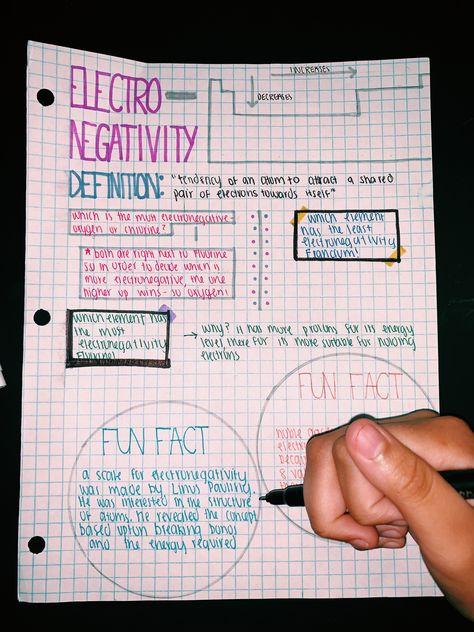 ELECTRO-
NEGATIVITY
INCREASES
DECREASES
DEFINITION: "tendency of an atom to attract a shared
pair of electrons towards itself"
which is the most electronegative -
oxygen or chlorine?
* both are right next to fluorine
so in order to decide which is
more electronegative, the one
higher up wins - so oxygen!
which element
has the least
electronegativity
Francium!
which element has
the most
electronegativity
Fluorine!
→ why? it has more protons for its energy
level, there for its more suitable for holding
electrons
FUN FACT
a scale for electronegativity
was made by Linus Pauling.
He was interested in the structure
of atoms. He revealed the concept
based upton breaking bonds
and the energy required
FUN FACT
noble